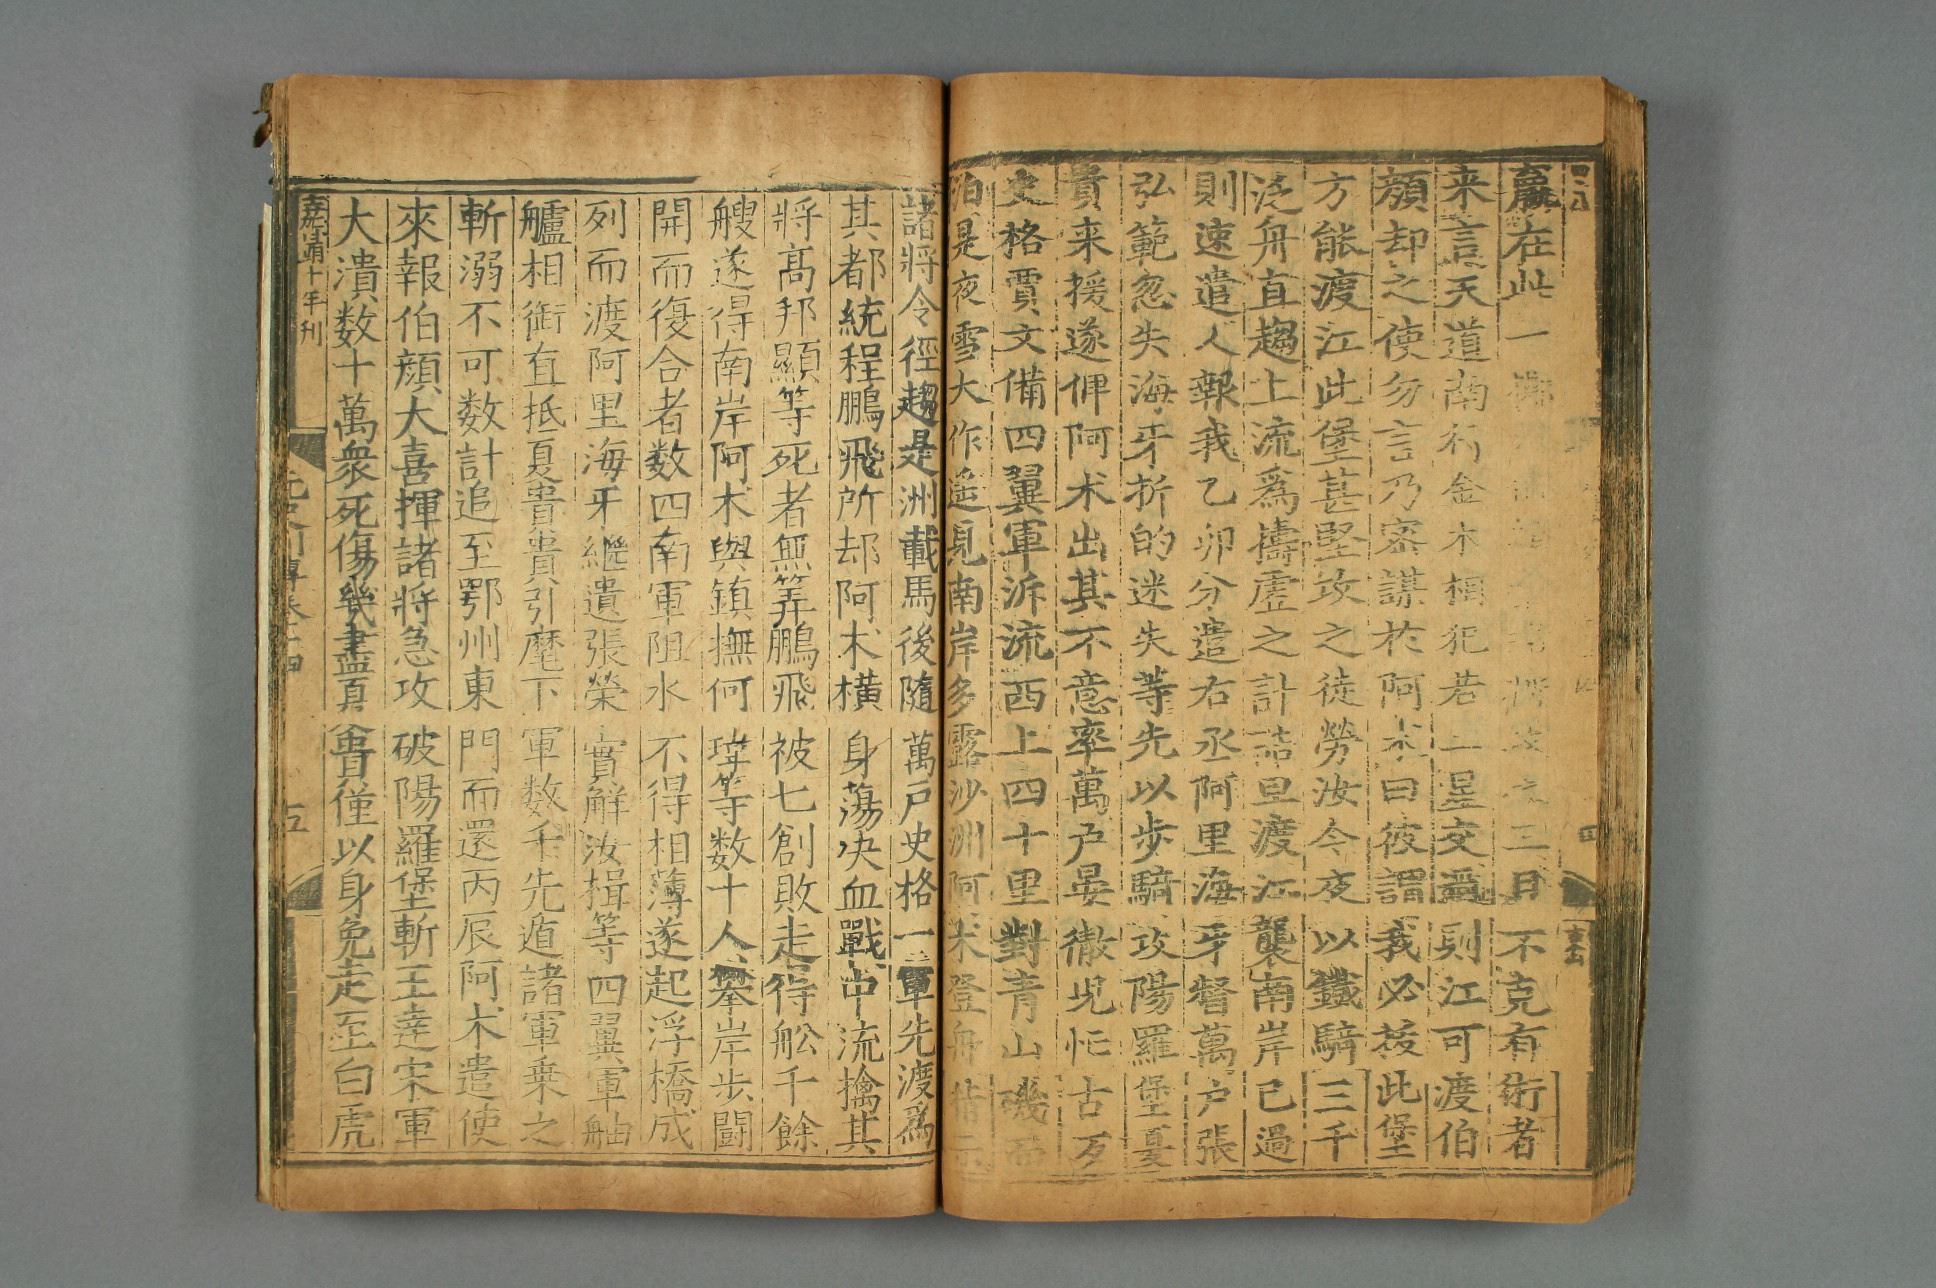 嬴在此一擲
三日不克有術者
来言天道南行金木相犯若二星交過則江可渡伯
顔却之使勿言乃密謀扵阿朮曰彼謂我必㧞此堡
方能渡江此堡甚堅攻之徒勞汝今夜以鐵騎三千
泛舟直趨上流爲擣虚之計詰旦渡江襲南岸已過
則速遣人報我乙卯分遣右丞阿里海牙督萬户張
弘範忽失海牙折的迷失等先以步騎攻陽羅堡夏
貴来援遂俾阿朮出其不意率萬户晏徹児忙古歹
史格賈文備四翼軍泝流西上四十里對青山磯而
泊是夜雪大作遥見南岸多露沙洲阿朮登舟指示
諸將令徑趨是洲載馬後隨萬戸史格一軍先渡爲
其都統程鵬飛所却阿朮橫身蕩决血戰中流擒其
將髙邦顯等死者無筭鵬飛被七創敗走得舩千餘
艘遂得南岸阿朮與鎮撫何瑋等数十人攀岸步鬬
開而復合者数四南軍阻水不得相薄遂起浮橋成
列而渡阿里海牙繼遣張榮實解汝揖等四翼軍舳
艫相銜直抵夏貴貴引麾下軍数千先遁諸軍乗之
斬溺不可数計追至鄂州東門而還丙辰阿朮遣使
來報伯顔大喜揮諸將急攻破陽羅堡斬王逹宋軍
大潰数十萬衆死傷幾盡夏貴僅以身免走至白虎
嘉靖十年刊
元史列傳卷十四
五